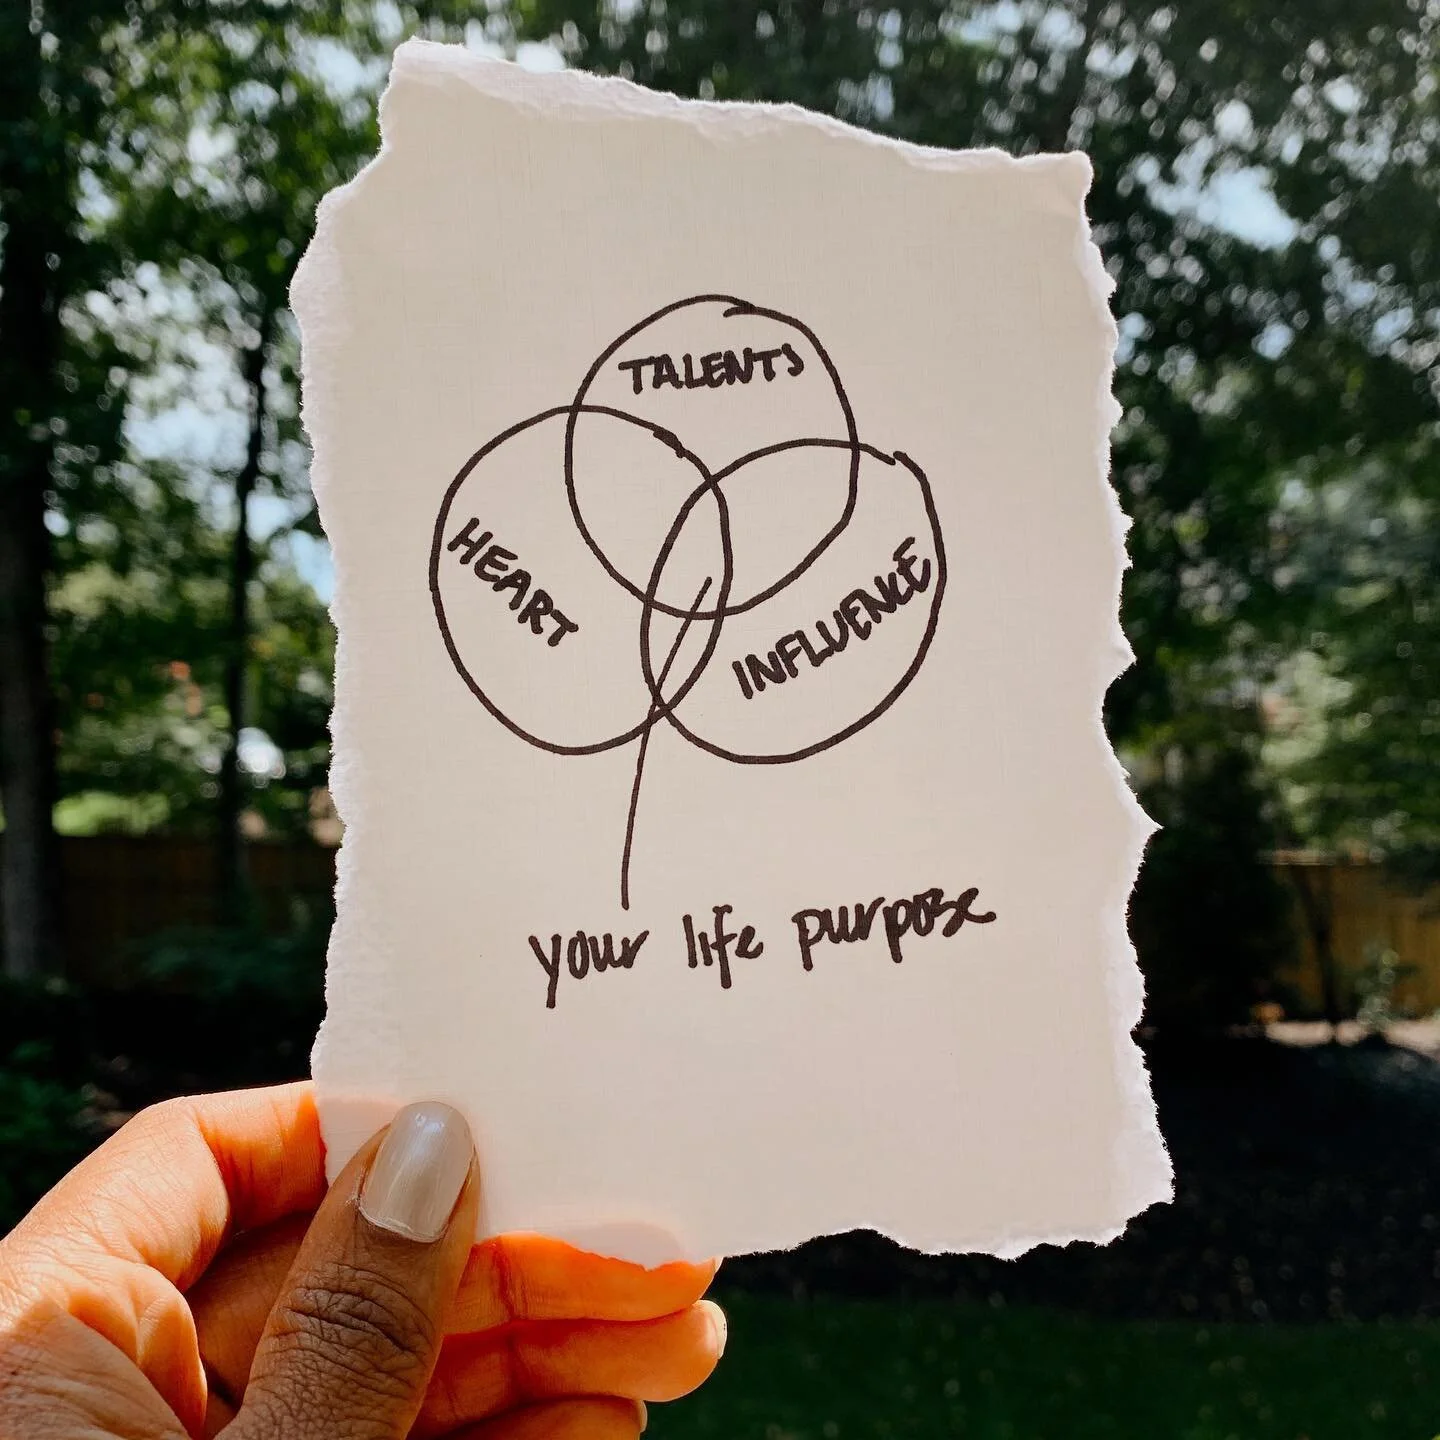 TALENTS
HEART
INFLUENCE
your life purpose